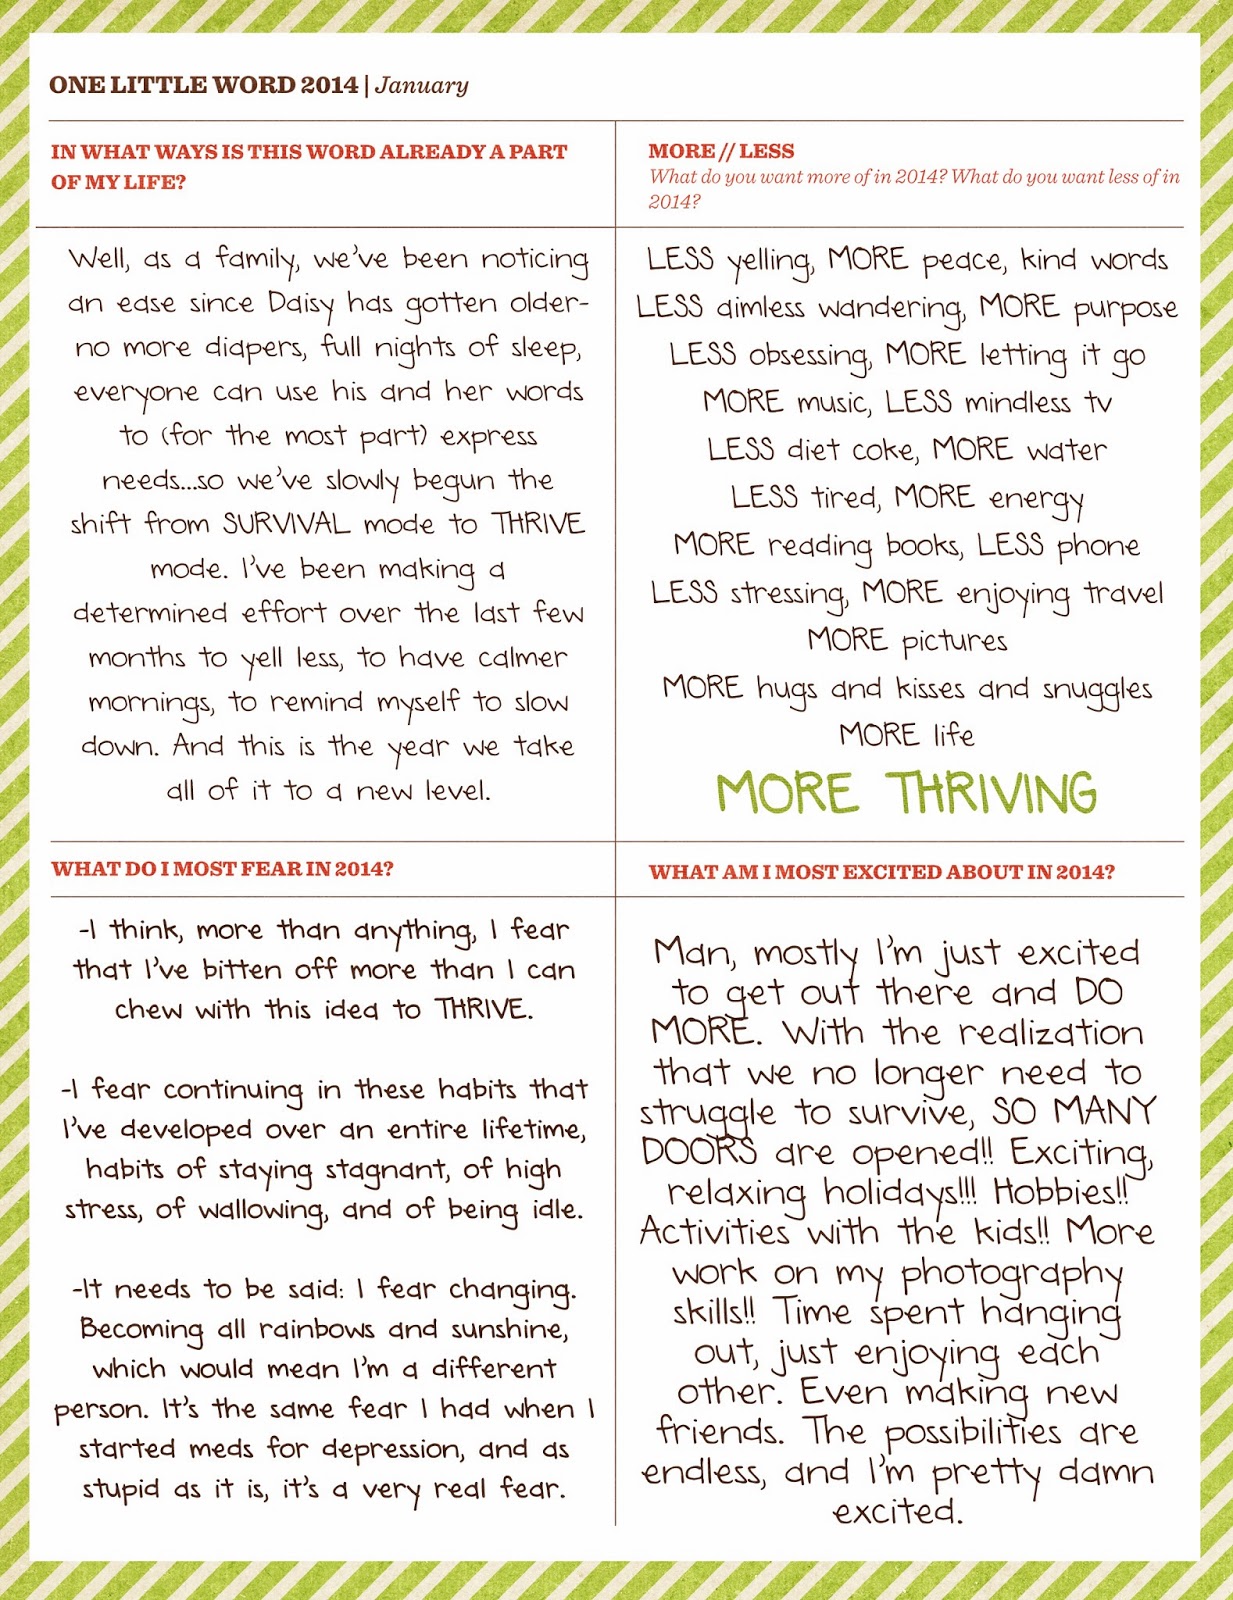 ONE LITTLE WORD 2014 | January
IN WHAT WAYS IS THIS WORD ALREADY A PART
OF MY LIFE?
Well, as a family, we've been noticing
an ease since Daisy has gotten older-
no more diapers, full nights of sleep,
everyone can use his and her words
to (for the most part) express
needs...so we've slowly begun the
shift from SURVIVAL mode to THRIVE
mode. I've been making a
determined effort over the last few
months to yell less, to have calmer
mornings, to remind myself to slow
down. And this is the year we take
all of it to a new level.
MORE // LESS
What do you want more of in 2014? What do you want less of in
2014?
LESS yelling, MORE peace, kind words
LESS aimless wandering, MORE purpose
LESS obsessing, MORE letting it go
MORE music, LESS mindless tv
LESS diet coke, MORE water
LESS tired, MORE energy
MORE reading books, LESS phone
LESS stressing, MORE enjoying travel
MORE pictures
MORE hugs and kisses and snuggles
MORE life
MORE THRIVING
WHAT DO I MOST FEAR IN 2014?
-I think, more than anything, I fear
that I've bitten off more than I can
chew with this idea to THRIVE.
-I fear continuing in these habits that
I've developed over an entire lifetime,
habits of staying stagnant, of high
stress, of wallowing, and of being idle.
-It needs to be said: I fear changing.
Becoming all rainbows and sunshine,
which would mean I'm a different
person. It's the same fear I had when I
started meds for depression, and as
stupid as it is, it's a very real fear.
WHAT AM I MOST EXCITED ABOUT IN 2014?
Man, mostly I'm just excited
to get out there and DO
MORE. With the realization
that we no longer need to
struggle to survive, SO MANY
DOORS are opened!! Exciting,
relaxing holidays!!! Hobbies!!
Activities with the kids!! More
work on my photography
skills!! Time spent hanging
out, just enjoying each
other. Even making new
friends. The possibilities are
endless, and I'm pretty damn
excited.